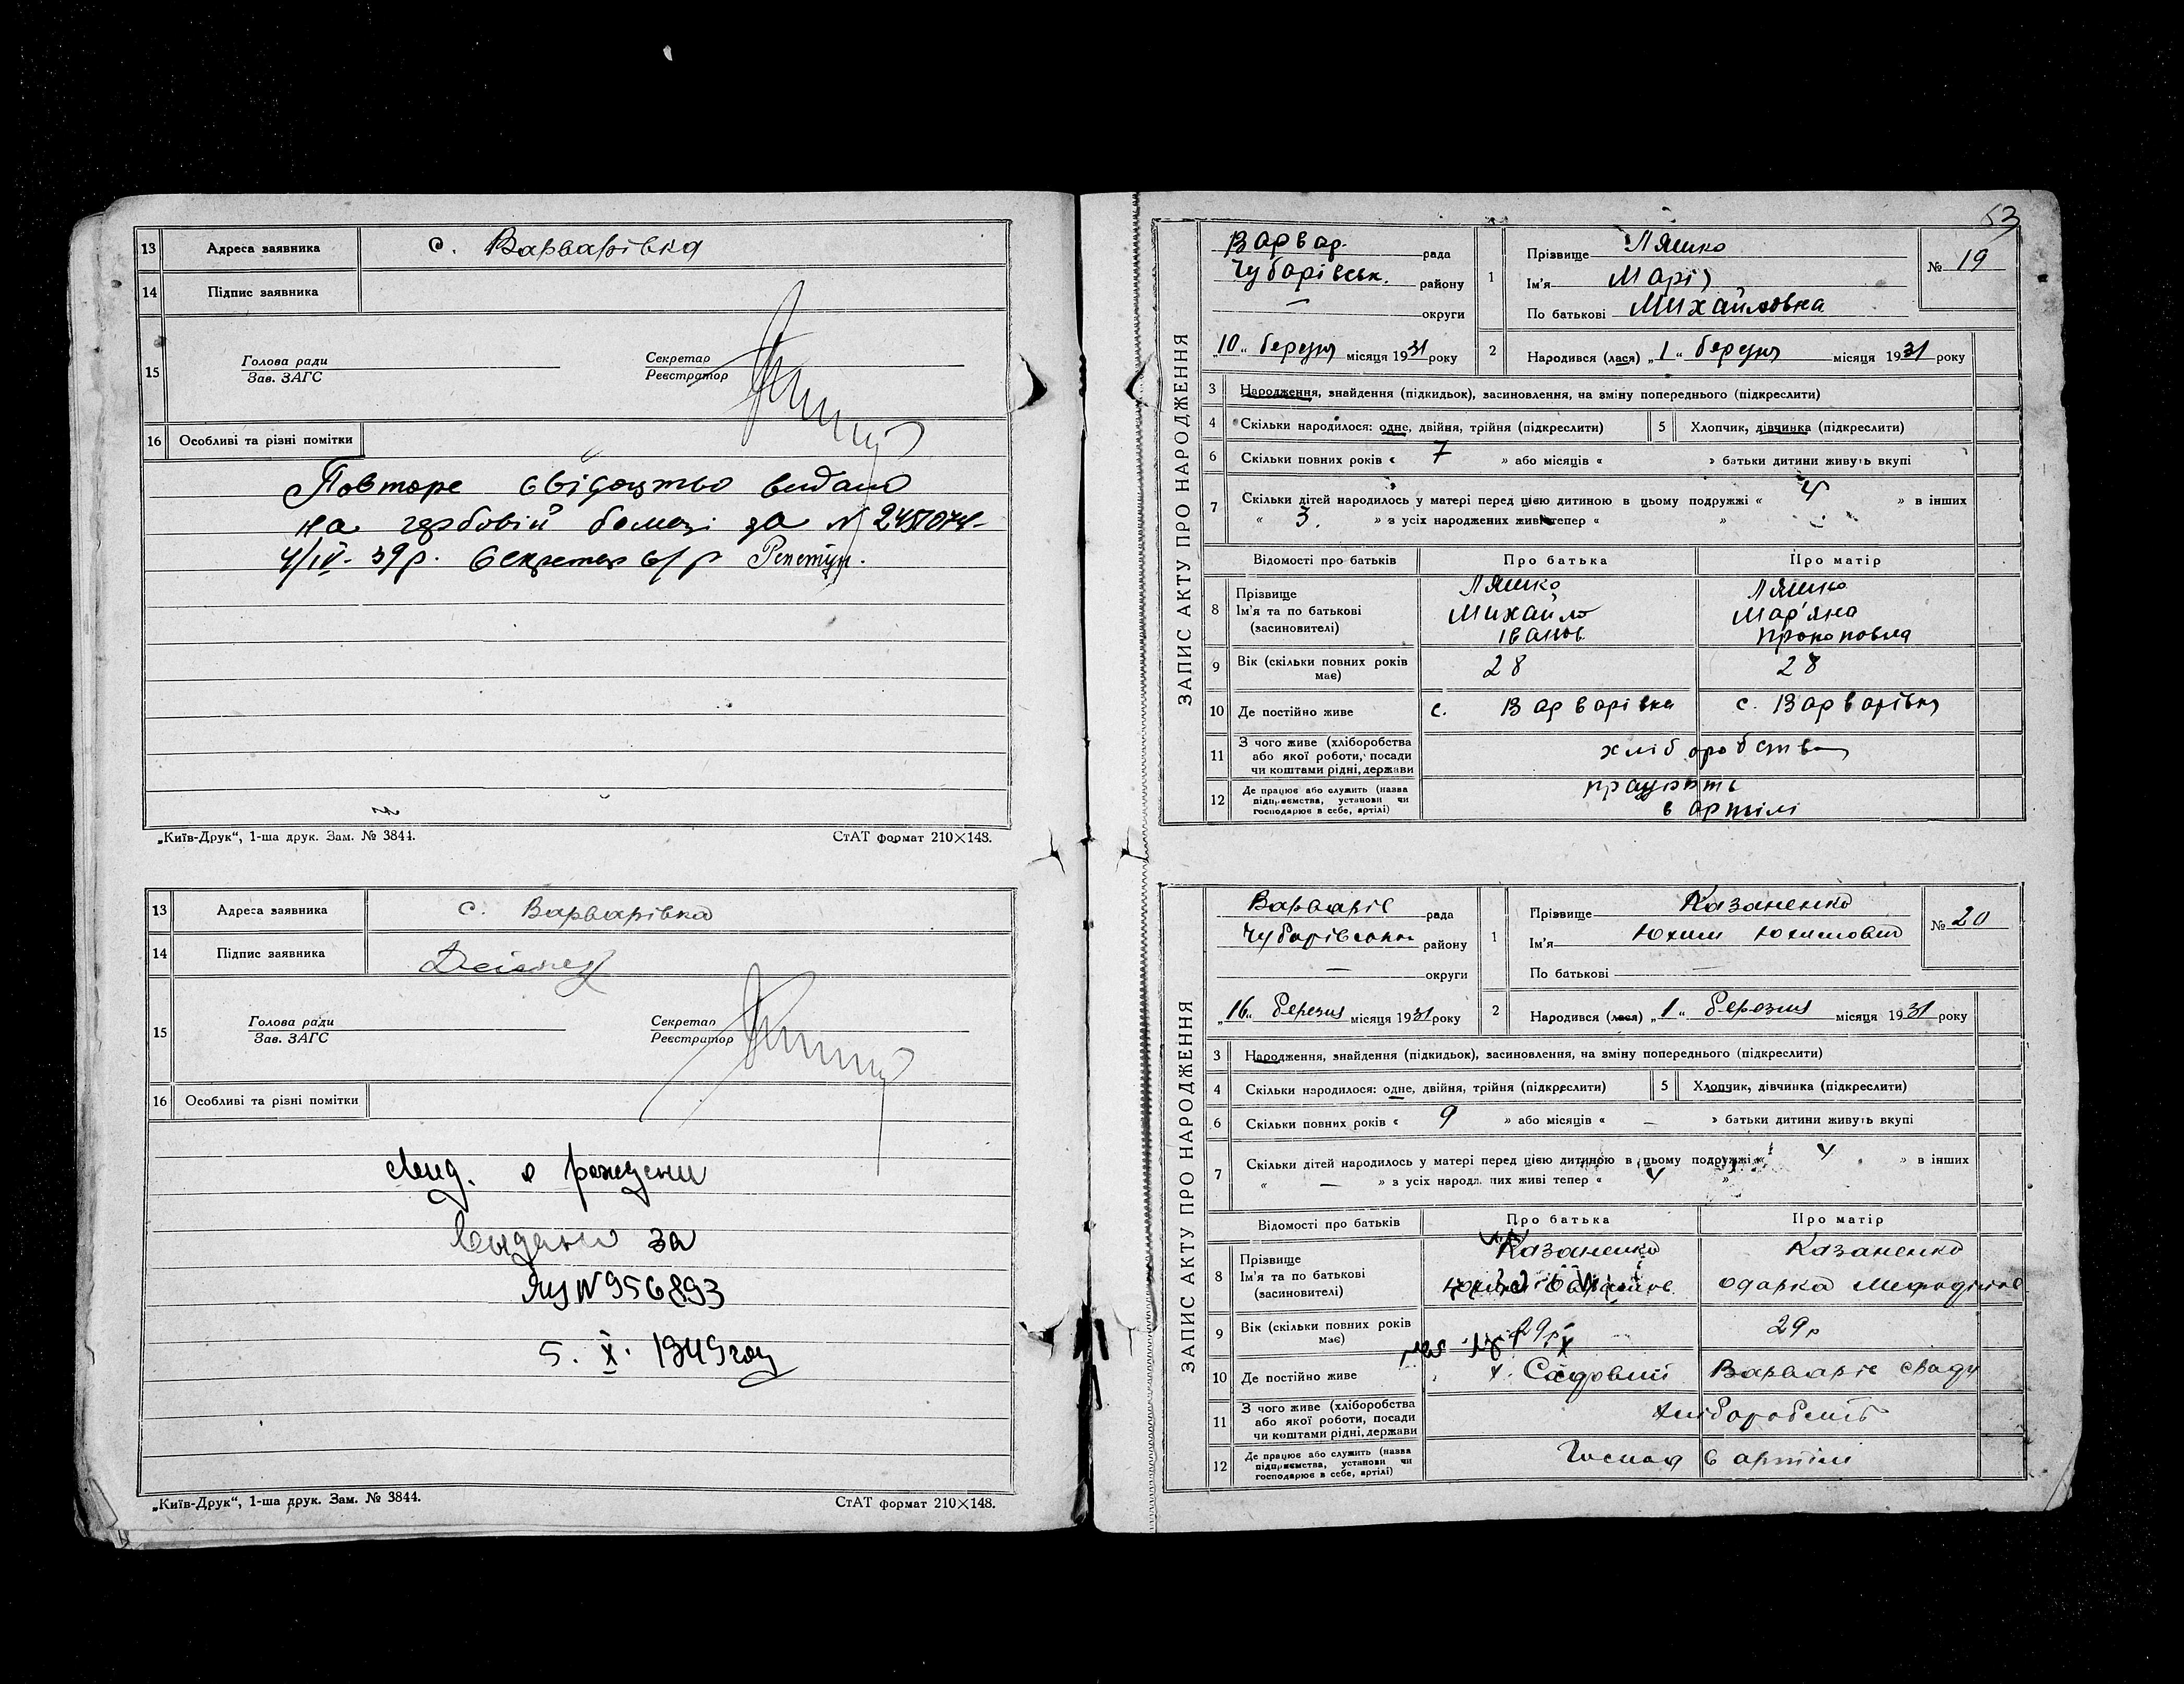 13 Адреса заявника с. Варварівка
14 Підпис заявника
15 Голова ради Секретар
Зав. ЗАГС Реєстратор
16 Особливі та різні помітки
Повторе свідоцтво видано
на гербовій бомазі за № 2451074
4/IV- 39 р. Секретар с/р Репетун.
„Київ-Друк“, 1-ша друк. Зам. № 3844. СтАТ формат 210×148.
13 Адреса заявника с. Варварівка
14 Підпис заявника
15 Голова ради Секретар
Зав. ЗАГС Реєстратор
16 Особливі та різні помітки
о рождени
выдано за
№ 956893
5. X. 1949 году
„Київ-Друк“, 1-ша друк. Зам. № 3844. СтАТ формат 210×148.
53
ЗАПИС АКТУ ПРО НАРОДЖЕННЯ
Варвар. рада
Чубарівськ. району
— округи
„10“ березня місяця 1931 року
1 Прізвище Ляшко
Ім'я Марія
По батькові Михайловна
№ 19
2 Народився (лася) „1“ березня місяця 1931 року
3 Народження, знайдення (підкидьок), засиновлення, на зміну попереднього (підкреслити)
4 Скільки народилося: одне, двійня, трійня (підкреслити) 5 Хлопчик, дівчинка (підкреслити)
6 Скільки повних років « 7 » або місяців « » батьки дитини живуть вкупі
7 Скільки дітей народилось у матері перед цією дитиною в цьому подружжі « 4 » в інших
« 3. » з усіх народжених живі тепер « »
Відомості про батьків Про батька Про матір
8 Прізвище Ляшко Ляшко
Ім'я та по батькові Михайло Мар'яна
(засиновителі) Іванов. Прокоповна
9 Вік (скільки повних років має) 28 28
10 Де постійно живе с. Варварівка с. Варварівка
11 З чого живе (хліборобства
або якої роботи, посади
чи коштами рідні, держави хліборобства
12 Де працює або служить (назва
підприємства, установи чи
господарює в себе, артілі) працюють
в артілі
ЗАПИС АКТУ ПРО НАРОДЖЕННЯ
Варварів рада
Чубарівського району
— округи
„16“ березня місяця 1931 року
1 Прізвище Казаненко
Ім'я Юхим Юхимович
По батькові
№ 20
2 Народився (лася) „1“ березня місяця 1931 року
3 Народження, знайдення (підкидьок), засиновлення, на зміну попереднього (підкреслити)
4 Скільки народилося: одне, двійня, трійня (підкреслити) 5 Хлопчик, дівчинка (підкреслити)
6 Скільки повних років « 9 » або місяців « — » батьки дитини живуть вкупі
7 Скільки дітей народилось у матері перед цією дитиною в цьому подружжі « 4 » в інших
« — » з усіх народжених живі тепер « 4 »
Відомості про батьків Про батька Про матір
8 Прізвище Казаненко Казаненко
Ім'я та по батькові Одарка
(засиновителі)
9 Вік (скільки повних років має) 29 р 29 р
10 Де постійно живе х. Садовий Варварів
11 З чого живе (хліборобства
або якої роботи, посади
чи коштами рідні, держави хліборобств
12 Де працює або служить (назва
підприємства, установи чи
господарює в себе, артілі) Господ в артілі